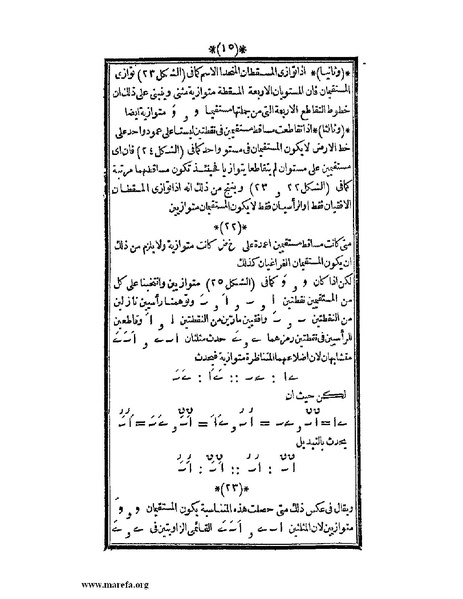 *(١٥)*
*(وثانيا)* اذا توازى المسقطان المتحدا الاسم كمافى (الشكل ٢٣) توازى
المستقيمان فان المستويان الاربعة المسقطة متوازية مثنى ويبنى على ذلك ان
خطوط التقاطع الاربعة التى من جملتها مستقيما و و وَ متوازية ايضا
*(وثالثا)* اذا تقاطعت مساقط مستقيمين فى نقطتين ليستا على عمود واحد على
خط الارض لا يكون المستقيمان فى مستو واحد كمافى (الشكل ٢٤) فان اى
مستقيمين على مستو ان لم يتقاطعا يتوازيا فحينئذ تكون مساقطهما مرتبة
كمافى (الشكل ٢٢ و ٢٣) وينتج من ذلك انه اذا توازى المسقطان
الافقيان فقط او الرأسيان فقط لا يكون المستقيمان متوازيين
*(٢٢)*
متى كانت مساقط مستقيمين اعمدة على خ ض كانت متوازية ولا يلزم من ذلك
ان يكون المستقيمان الفراغيان كذلك
لكن اذا كان و و وَ كمافى (الشكل ٢٥) متوازيين وانتخبنا على كل
من المستقيمين نقطتين ا و ر و اَ و رَ وتوهمنا رأسيين نازلين
من النقطتين ر و رَ وافقيين مارين من النقطتين ا و اَ وتقاطعين
للرأسيين فى نقطتين رمزهما ے و ےَ حدث مثلثان ا ر ے و اَرَےَ
متشابهان لان اضلاعهما المتناظرة متوازية فيحدث
ےا : ے ر :: ےَاَ : ےَرَ
لكن حيث ان
يحدث بالتبديل
*(٢٣)*
ويقال فى عكس ذلك متى حصلت هذه المتناسبة يكون المستقيمان و و وَ
متوازيين لان المثلثين ا ر ے و اَرَےَ القائمى الزاويتين فى ے و ےَ
www.marefa.org